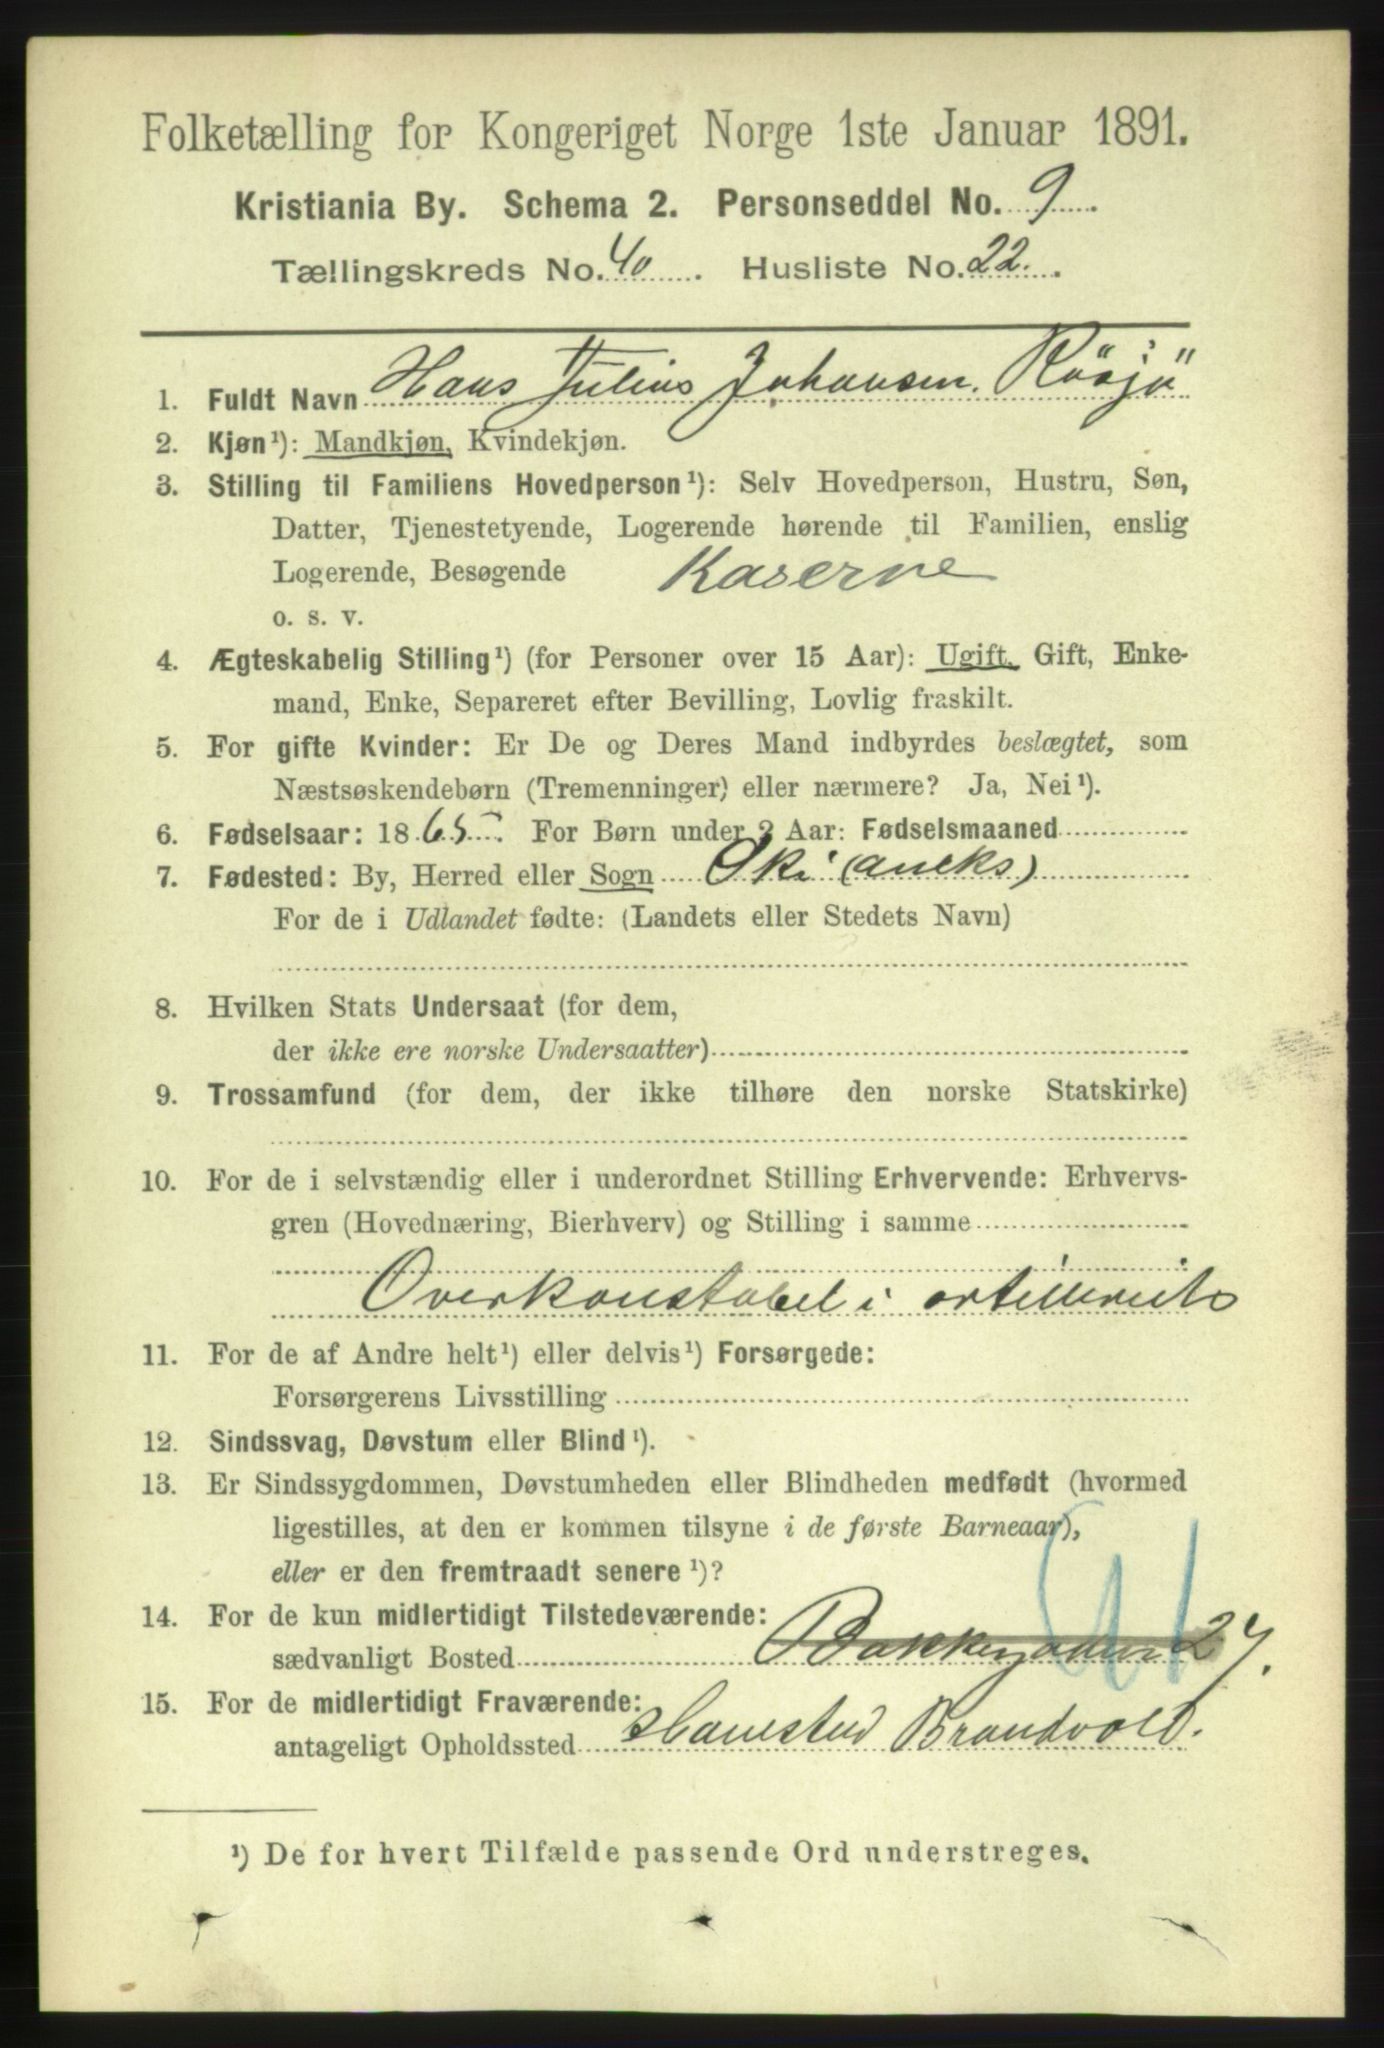 Folketælling for Kongeriget Norge 1ste Januar 1891.
Kristiania By. Schema 2. Personseddel No. 9.
Tællingskreds No. 40. Husliste No. 22.
1. Fuldt Navn Hans Julius Johansen. Röösjö
2. Kjøn¹): Mandkjøn, Kvindekjøn.
3. Stilling til Familiens Hovedperson¹): Selv Hovedperson, Hustru, Søn,
Datter, Tjenestetyende, Logerende hørende til Familien, enslig
Logerende, Besøgende Kaserne
o. s. v.
4. Ægteskabelig Stilling¹) (for Personer over 15 Aar): Ugift, Gift, Enke-
mand, Enke, Separeret efter Bevilling, Lovlig fraskilt.
5. For gifte Kvinder: Er De og Deres Mand indbyrdes beslægtet, som
Næstsøskendebørn (Tremenninger) eller nærmere? Ja, Nei¹).
6. Fødselsaar: 1865. For Børn under 2 Aar: Fødselsmaaned
7. Fødested: By, Herred eller Sogn (aneks)
For de i Udlandet fødte: (Landets eller Stedets Navn)
8. Hvilken Stats Undersaat (for dem,
der ikke ere norske Undersaatter)
9. Trossamfund (for dem, der ikke tilhøre den norske Statskirke)
10. For de i selvstændig eller i underordnet Stilling Erhvervende: Erhvervs-
gren (Hovednæring, Bierhverv) og Stilling i samme
Overkonstabel i
11. For de af Andre helt¹) eller delvis¹) Forsørgede:
Forsørgerens Livsstilling
12. Sindssvag, Døvstum eller Blind¹).
13. Er Sindssygdommen, Døvstumheden eller Blindheden medfødt (hvormed
ligestilles, at den er kommen tilsyne i de første Barneaar),
eller er den fremtraadt senere¹)?
14. For de kun midlertidigt Tilstedeværende:
sædvanligt Bosted 27.
15. For de midlertidigt Fraværende:
antageligt Opholdssted Hanestad Brandvold.
¹) De for hvert Tilfælde passende Ord understreges.